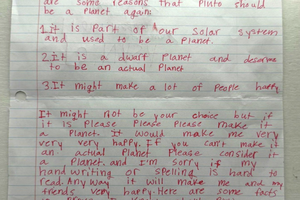 are some reasons that Pluto should
be a Planet again.
1.it is Part of our solar system
and used to be a Planet.
2.It is a dwarf Planet and deserve
to be an actual Planet
3.It might make a lot of People happy
It might not be your choice but if
it is Please Please Please make it
a Planet. It would make me very
very very happy. If you can't make it
an actual Planet Please consider it
a Planet. and I'm sorry if my
hand writing or spelling is hard to
read. Any way it will make me and my
friends very happy. Here are some facts